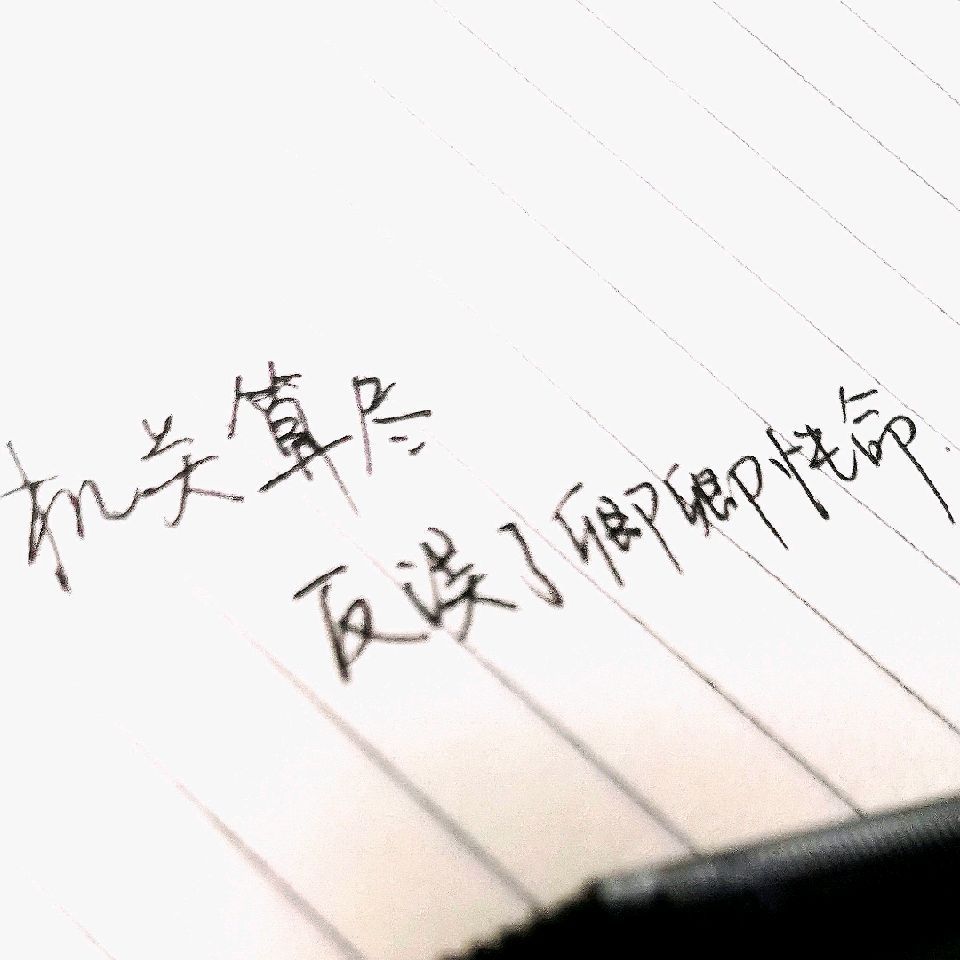 机关算尽
反误了卿卿性命.